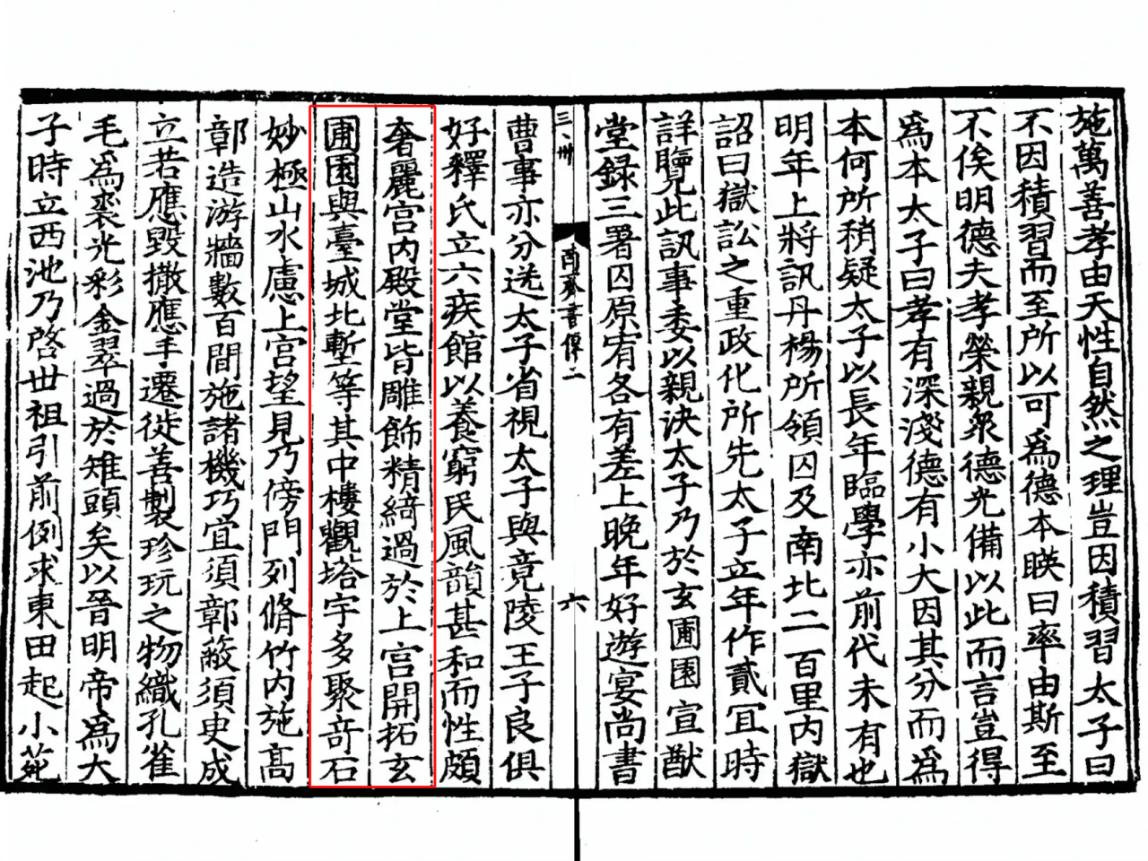 施萬善孝由天性自然之理豈因積習太子曰
不因積習而至所以可爲德本暎曰率由斯至
不俟明德夫孝榮親衆德光備以此而言豈得
爲本太子曰孝有深淺德有小大因其分而爲
本何所稍疑太子以長年臨學亦前代未有也
明年上將訊丹楊所領囚及南北二百里内獄
詔曰獄訟之重政化所先太子立年作貳宜時
詳覽此訊事委以親決太子乃於玄圃園宣猷
堂録三署囚原宥各有差上晚年好遊宴尚書
三卅 南齊書傳二 六
曹事亦分送太子省視太子與竟陵王子良俱
好釋氏立六疾館以養窮民風韻甚和而性頗
奢麗宫内殿堂皆雕飾精綺過於上宫開拓玄
圃園與臺城北塹等其中樓觀塔宇多聚奇石
妙極山水慮上宫望見乃傍門列脩竹内施高
鄣造游牆數百間施諸機巧宜須鄣蔽須臾成
立若應毁撤應手遷徙善製珍玩之物織孔雀
毛爲裘光彩金翠過於雉頭矣以晉明帝爲太
子時立西池乃啓世祖引前例求東田起小苑